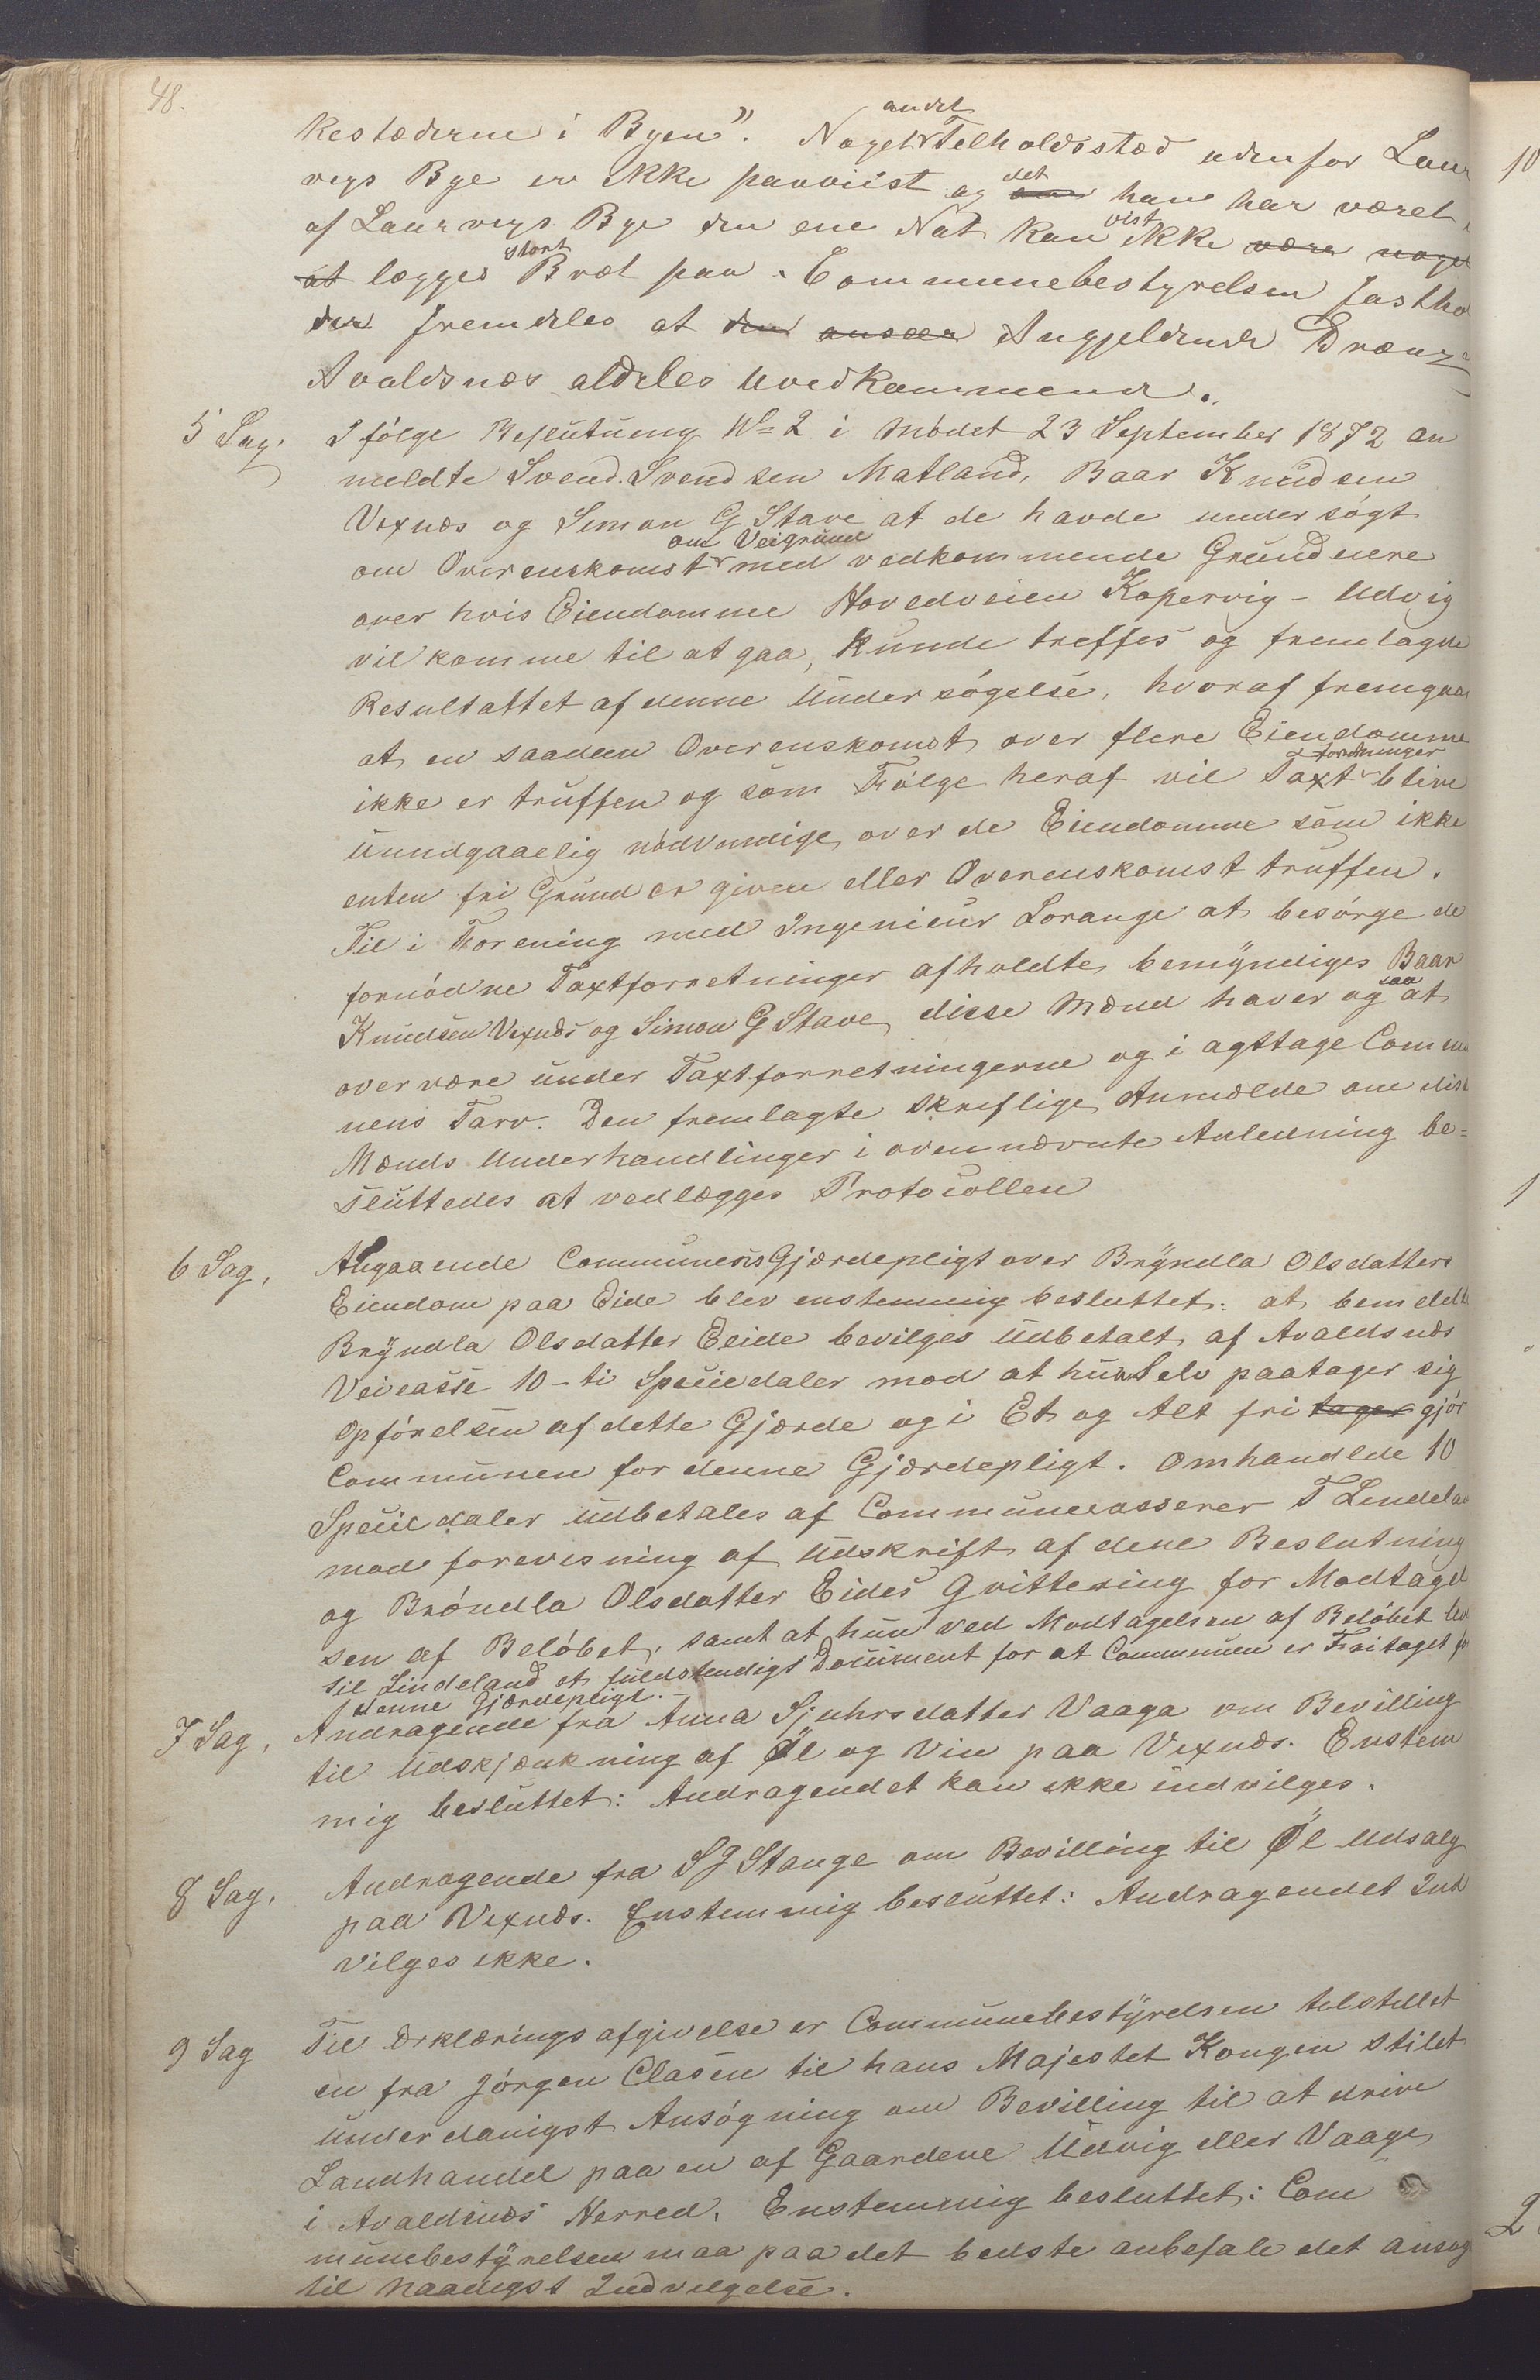 48.
kestæderne i Byen". Noget andet Tilholdssted udenfor Laur
vigs Bye er ikke paaviist og det han har været
af Laurvigs Bye den ene Nat kan vist ikke være noget
at lægges stort Vræt paa. Communebestyrelsen fasthol
der fremdeles at den anseer Angjeldende Dræng
Avaldsnæs aldeles uvedkommende.
5 Sag. I følge Beslutning No 2 i Mødet 23 September 1872 an
meldte Svend. Svendsen Matland, Baar Knudsen
Vixnæs og Simon G Stave at de havde undersøgt
om Overenskomst om Veigrund med vedkommende Grundeiere
over hvis Eiendomme Hovedveien Kopervig - Udvig
vil komme til at gaa, kunde treffes og fremlagde
Resultattet af denne Undersøgelse, hvoraf fremgaar
at en saadan Overenskomst over flere Eiendomme
ikke er truffen og som Følge heraf vil Taxtforretninger blive
uundgaaelig nødvendige over de Eiendomme som ikke
enten fri Grund er given eller Overenskomst truffen.
Til i Forening med Ingenieur Lorange at besørge de
fornødne Taxtforretninger afholdte, bemyndiges Baar
Knudsen Vixnæs og Simon G Stave, disse Mænd haver og saa at
overvære under Taxtforretningerne og i agttage Commu
nens Tarv. Den fremlagte skriflige Anmælde om disse
Mænds Underhandlinger i ovennævnte Anledning be=
sluttedes at vedlægges Protocollen
6 Sag, Angaaende Communens Gjærdepligt over Bryndla Olsdatters
Eiendom paa Eide blev enstemmig besluttet: at bemeldte
Bryndla Olsdatter Eeide bevilges Udbetalt af Avaldsnæs
Veicasse 10 - ti Speciedaler mod at hun selv paatager sig
Opførelsen af dette Gjærde og i Et og Alt fri tager gjør
Communen for denne Gjærdepligt. Omhandlde 10
Speciedaler udbetales af Communecasserer T Lindeland
mod forevisning af Udskrift af dene Beslutning
og Brøndla Olsdatter Eides Qvittering for Modtagel
sen af Beløbet, samt at hun ved Modtagelsen af Beløbet
til Lindeland et fuldstendigt Document for at Communen er Fritaget for
denne Gjærdepligt.
7 Sag, Andragende fra Anna Sjuhrsdatter Vaaga om Bevilling
til Udskjænkning af Øl og Vin paa Vixnæs. Enstem
mig besluttet: Andragendet kan ikke indvilges.
8 Sag. Andragende fra S G Stange om Bevilling til Øl Udsalg
paa Vixnæs. Enstemmig besluttet: Andragendet Ind
vilges ikke.
9 Sag Til Erklæringsafgivelse er Communebestyrelsen tilstillet
en fra Jørgen Clasen til hans Majestet Kongen stilet
underdanigst Ansøgning om Bevilling til at drive
Landhandel paa en af Gaardene Udvig eller Vaage
i Avaldsnæs Herred. Enstemmig besluttet: Com
munebestyrelsen maa paa det bedste anbefale det ansøgte
til naadigst Indvilgelse.